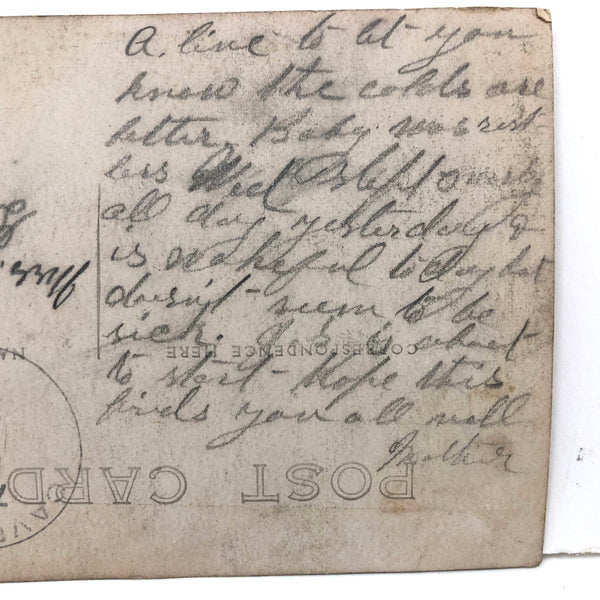 A. line to let you
know the colds are
better. Baby was rest-
less Wed & slept
all day yesterday &
is wakeful today but
doesn't seem to be
sick. is about
to start - Hope this
finds you all well
Mother
CORRESPONDENCE HERE
NA
POST CARD
AVE